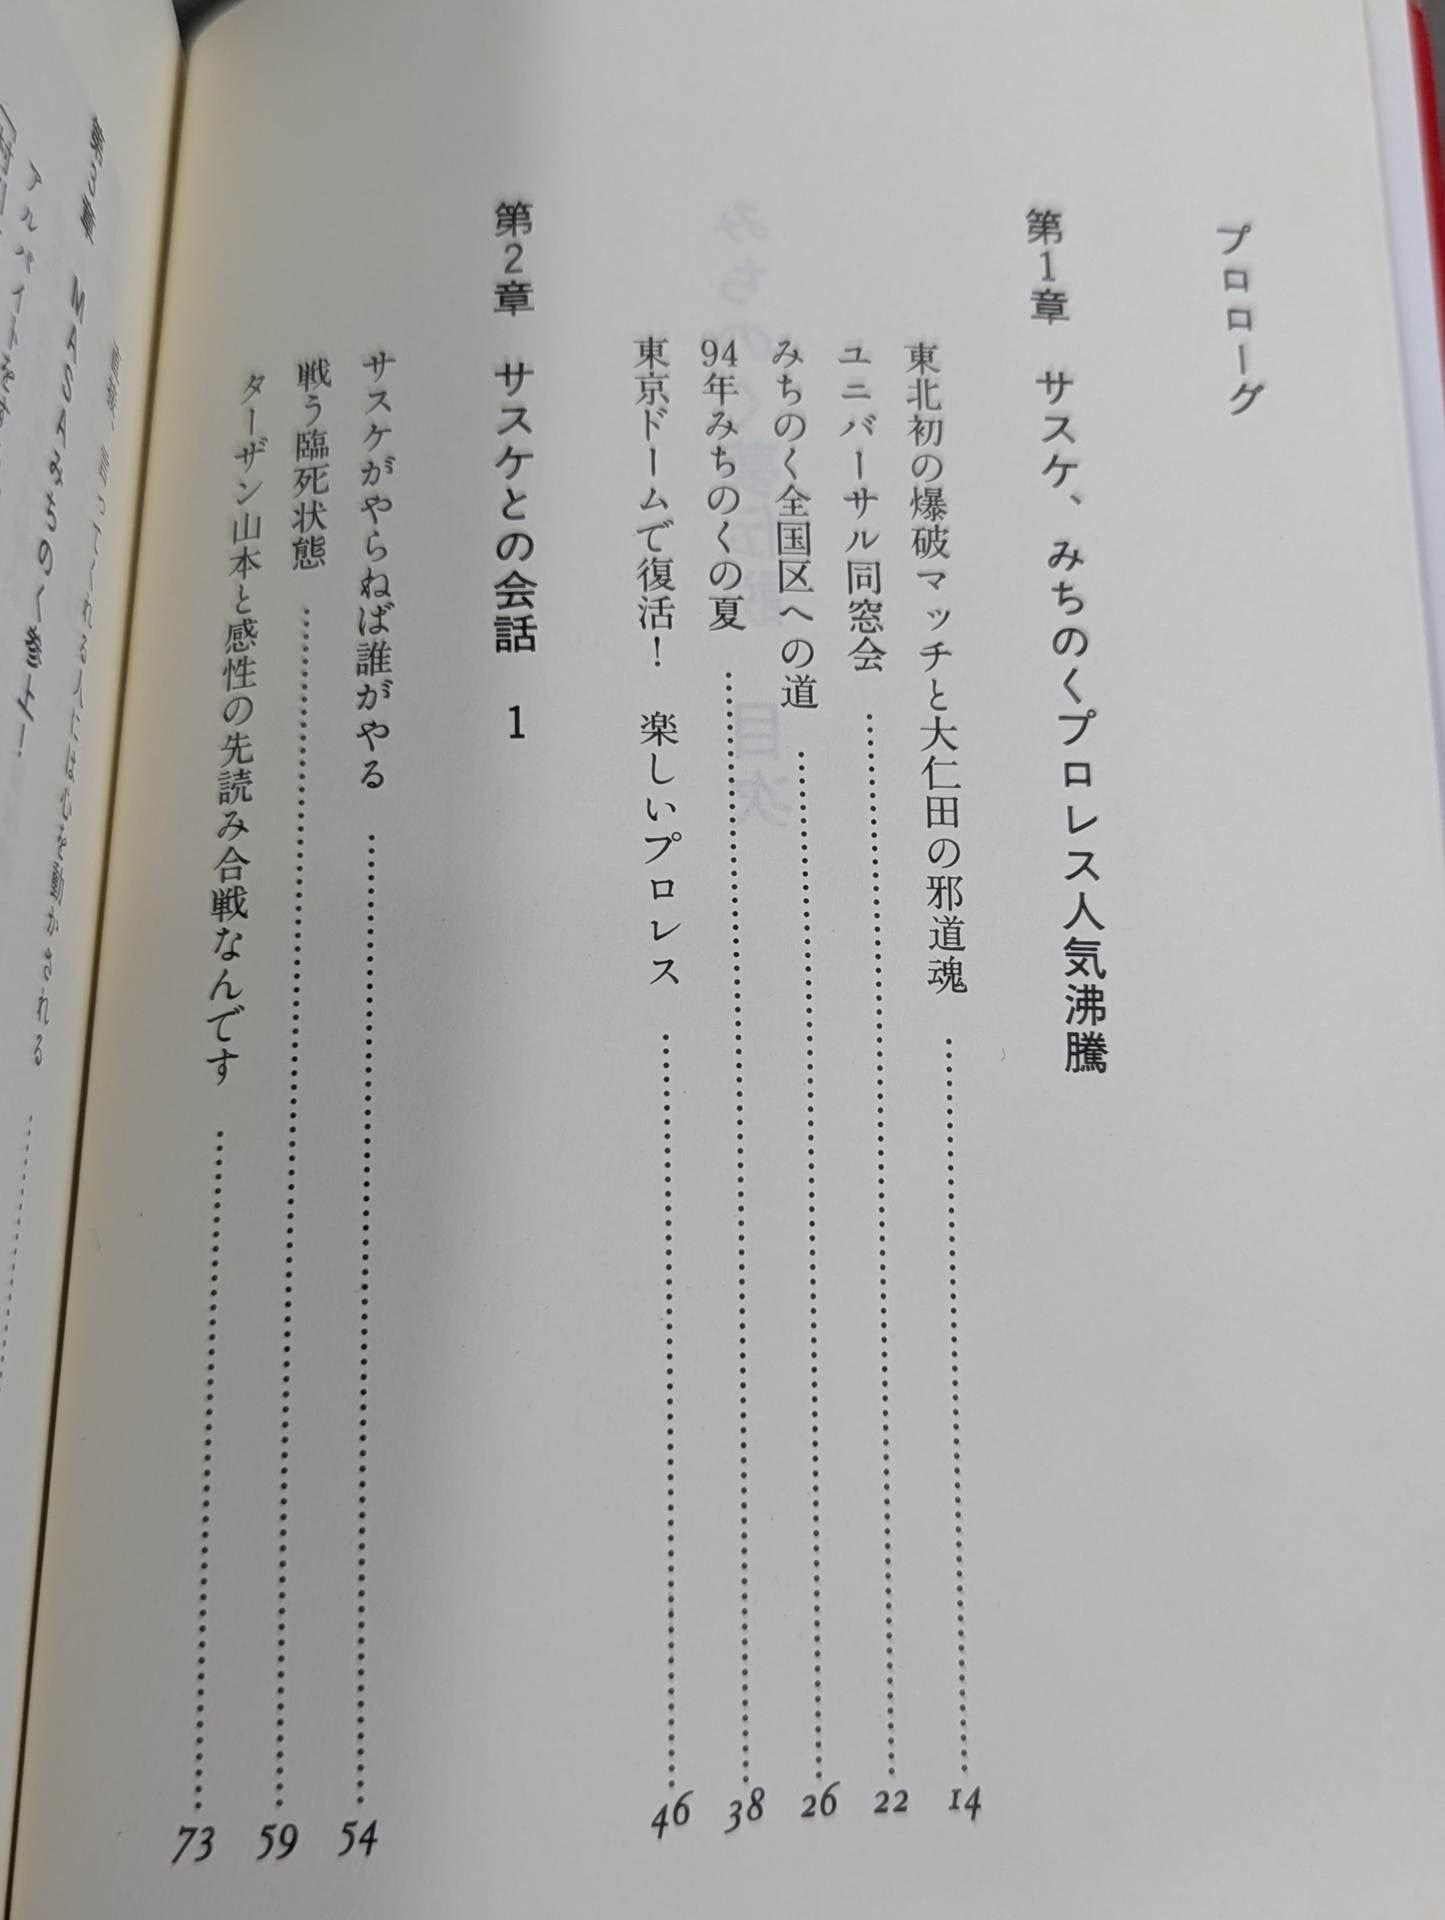 プロローグ
第1章 サスケ、みちのくプロレス人気沸騰
東北初の爆破マッチと大仁田の邪道魂 14
ユニバーサル同窓会 22
みちのく全国区への道 26
94年みちのくの夏 38
東京ドームで復活! 楽しいプロレス 46
第2章 サスケとの会話 1
サスケがやらねば誰がやる 54
戦う臨死状態 59
ターザン山本と感性の先読み合戦なんです 73
言ってくれる人には心を動かされる
第3章 MASAみちのく参上!
アルバイトを